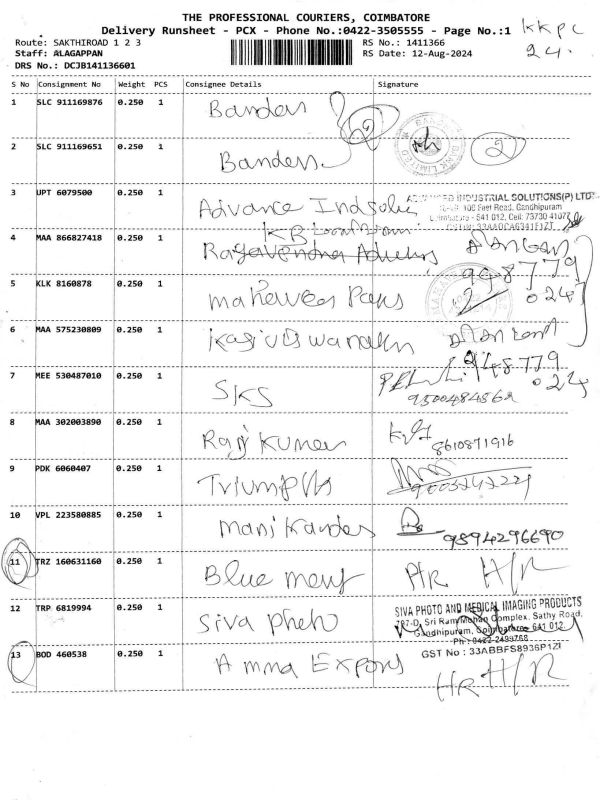 THE PROFESSIONAL COURIERS, COIMBATORE
Delivery Runsheet - PCX - Phone No.:0422-3505555 - Page No.:1
KKPC
24.
Route: SAKTHIROAD 1 2 3
RS No.: 1411366
Staff: ALAGAPPAN
RS Date: 12-Aug-2024
DRS No.: DCJB141136601
S No Consignment No Weight PCS Consignee Details Signature
1 SLC 911169876 0.250 1 Banden
2 SLC 911169651 0.250 1 Banden 2
3 UPT 6079500 0.250 1 Advance
INDUSTRIAL SOLUTIONS(P) LTD
100 East Road, Gandhipuram
641 012, Cell: 73730 41077
KB
4 MAA 866827418 0.250 1 Ragavendra
998779
024
5 KLK 8160878 0.250 1 Mahaveer
6 MAA 575230809 0.250 1 Kasiviswanathan
948779
024
7 MEE 530487010 0.250 1 SKS 9500484562
8 MAA 302003890 0.250 1 Raj Kumar 8610871916
9 PDK 6060407 0.250 1 Triumph
10 VPL 223580885 0.250 1 Manikandan 9894296690
11 TRZ 160631160 0.250 1 Blue H/R
12 TRP 6819994 0.250 1 Siva Photo
SIVA PHOTO AND MEDICAL IMAGING PRODUCTS
787-D, Sri Ram Mohan Complex, Sathy Road,
Gandhipuram, Coimbatore 641 012.
Ph: 0422-2493768
GST No : 33ABBFS8936P1ZI
13 BOD 460538 0.250 1 Amma Expors HR H/R